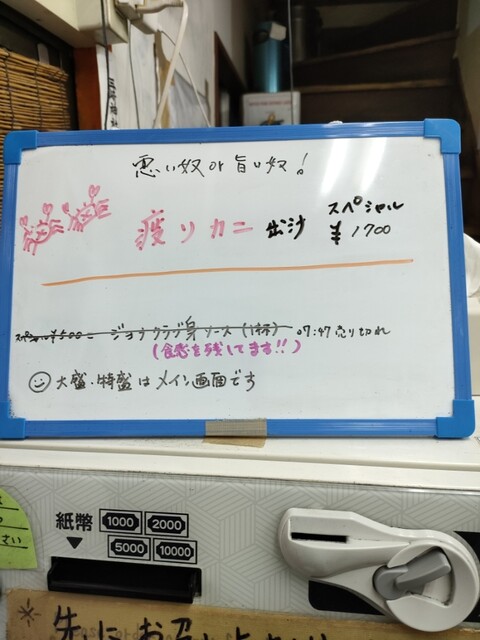 悪い奴 or 旨い奴!
疲リカニ 出沙 スペシャル
¥1700
スペシャル¥500ー ジョナクラブ身ソース(1杯) 07:47売り切れ
(食感を残してます!!)
大盛・特盛はメイン画面です
紙幣 1000 2000
5000 10000
さい
*先にお